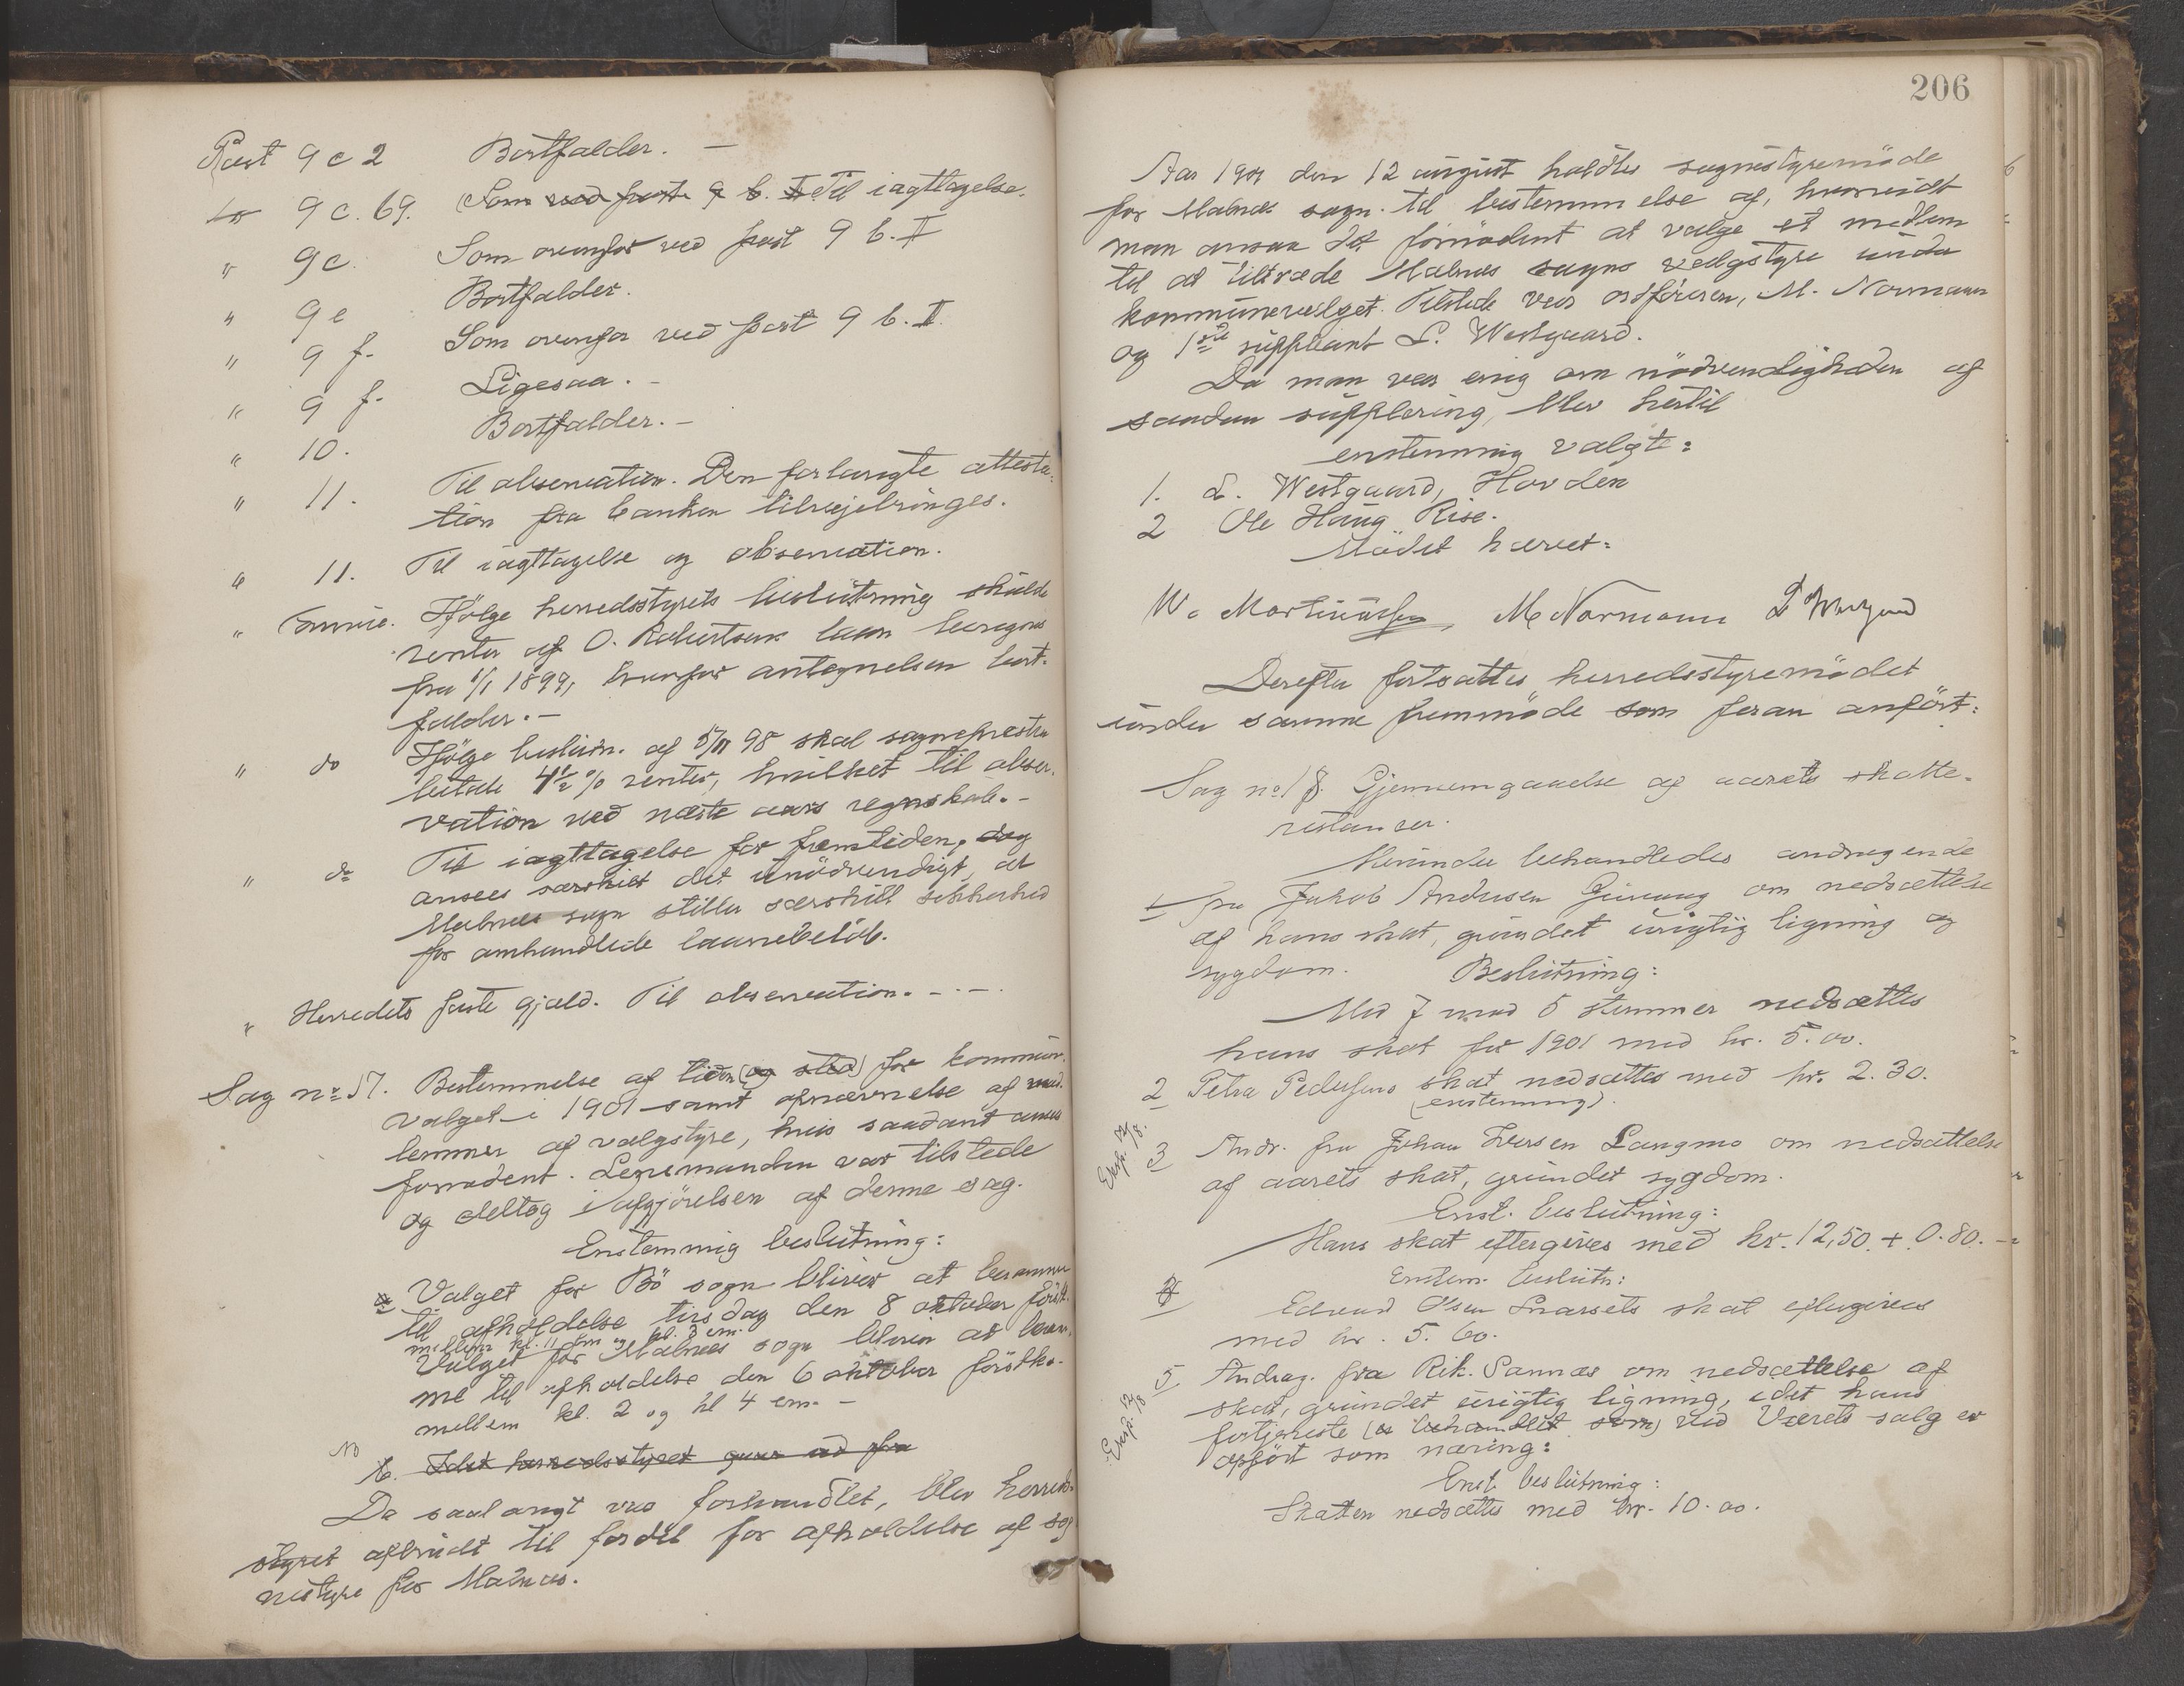 Post 9 c 2 Bortfalder. —
9 c. 69. (Som ved poste 9 b. II Til iagttagelse.
" 9 c. Som ovenfor ved post 9 b. II
" 9 e Bortfalder.
" 9 f. Som ovenfor ved post 9 b. II.
" 9 f. Ligesaa. -
" 10. Bortfalder. -
" 11. Til observation. Den forlangte attesta-
tion fra banken tilvejebringes.
" 11. Til iagttagelse og observation.
" Ifölge herredsstyrets beslutning skulde
renter af O. Robertsens laan beregnes
fra 1/1 1899, hvorfor antegnelsen bort-
falder. -
" do Ifölge beslutn. af 98 skal sognepresten
betale 4½ % renter, hvilket til obser-
vation ved næste aars regnskab. -
" do Til iagttagelse for fremtiden, dog
ansees særskilt det unödvendigt, at
Malnes sogn stiller særskilt sikkerhed
for omhandlede laanebelöb.
" Herredets faste gjæld. Til observation. - . -
Sag no 17. Bestemmelse af tiden (og sted) for kommune-
valget i 1901 samt opnævnelse af med-
lemmer af valgstyre, hvis saadant ansees
fornödent. Lensmanden var tilstede
og deltog i afgjörelsen af denne sag.
Enstemmig beslutning:
a Valget for Bö sogn bliver at beramme
til afholdelse tirsdag den 8 oktober först.
mellem kl. 11 fm og kl. 3 em.
Valget for Malnes sogn bliver at beram-
me til afholdelse den 6 oktober förstk.
mellem kl. 2 og kl 4 em. -
No b. Idet herredsstyret gaar ud fra
Da saalangt var forhandlet, blev herreds-
styret afbrudt til fordel for afholdelse af sog-
nestyre for Malnes.
206
Aar 1901 den 12 august holdtes sognestyremöde
for Malnes sogn til bestemmelse af, hvorvidt
man ansaa det fornödent at vælge et medlem
til at tiltræde Malnes sogns valgstyre under
kommunevalget. Tilstede var ordföreren, M. Normann
og 1ste suppleant L. Westgaard.
Da man var enig om nödvendigheden af
saadan supplering, blev hertil
enstemmig valgt:
1. L. Westgaard, Hovden
2 Ole Haug Rise.
Mödet hævet:
W. Martinussen, M Normann L Westgaard
Derefter fortsattes herredsstyremödet
under samme fremmöde som foran anfört:
Sag no 18. Gjennemgaaelse af aarets skatte-
restanser.
Herunder behandledes andragende
1 fra Jakob Andresen Guvaag om nedsættelse
af hans skat, grundet urigtig ligning og
sygdom. Beslutning:
Med 7 mod 5 stemmer nedsættes
hans skat for 1901 med kr. 5.00.
2 Petra Pedersens skat nedsættes med kr. 2.30.
(enstemmig).
Eksp. /8.
3 Andr. fra Johan Iversen Langmo om nedsættelse
af aarets skat, grundet sygdom.
Enst. beslutning:
Hans skat eftergives med kr. 12,50 + 0.80. -
Enstem. beslutn:
4 Edvard Olsen skat eftergives
med kr. 5.60.
Eksp. /8
5 Andrag. fra Rik. Sannes om nedsættelse af
skat, grundet urigtig ligning, idet hans
fortjeneste (er behandlet som) ved Værets salg er
opfört som næring:
Enst. beslutning:
Skatten nedsættes med kr. 10.00.